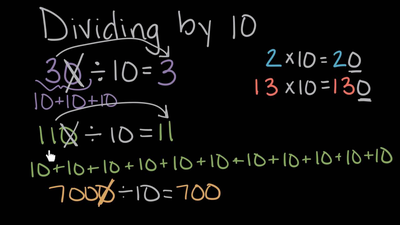 Dividing by 10
30 ÷ 10 = 3
10+10+10
2 × 10 = 20
13 × 10 = 130
110 ÷ 10 = 11
10+10+10+10+10+10+10+10+10+10+10
7000 ÷ 10 = 700